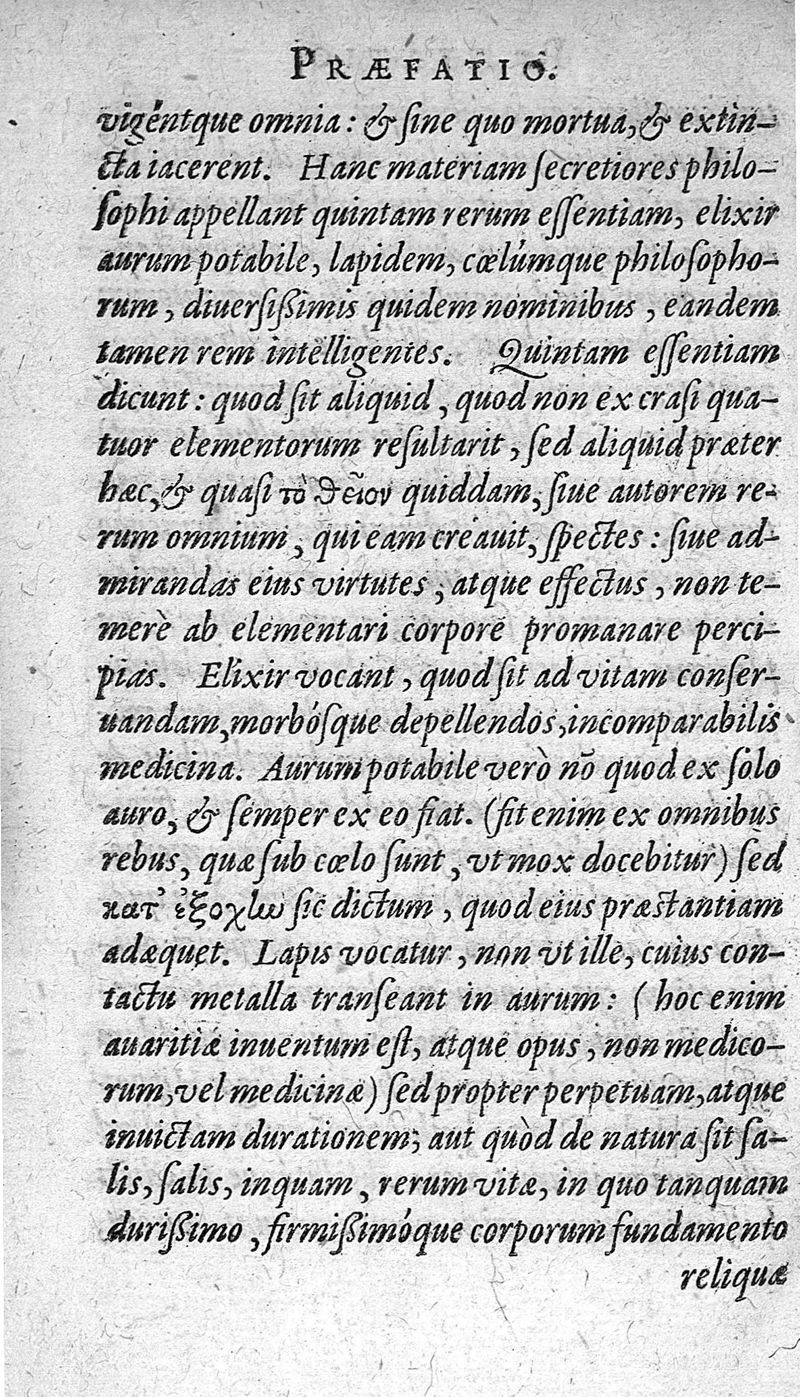 PRÆFATIO.
vigéntque omnia: & sine quo mortua, & extin-
cta iacerent. Hanc materiam secretiores philo-
sophi appellant quintam rerum essentiam, elixir
aurum potabile, lapidem, cœlúmque philosopho-
rum, diuersißimis quidem nominibus, eandem
tamen rem intelligentes. Quintam essentiam
dicunt: quod sit aliquid, quod non ex crasi qua-
tuor elementorum resultarit, sed aliquid præter
hæc, & quasi τὸ θεῖον quiddam, siue autorem re-
rum omnium, qui eam creauit, spectes: siue ad-
mirandas eius virtutes, atque effectus, non te-
merè ab elementari corpore promanare perci-
pias. Elixir vocant, quod sit ad vitam conser-
uandam, morbósque depellendos, incomparabilis
medicina. Aurum potabile verò nō quod ex solo
auro, & semper ex eo fiat. (fit enim ex omnibus
rebus, quæ sub cœlo sunt, vt mox docebitur) sed
κατ' ἐξοχὴν sic dictum, quod eius præstantiam
adæquet. Lapis vocatur, non vt ille, cuius con-
tactu metalla transeant in aurum: (hoc enim
auaritiæ inuentum est, atque opus, non medico-
rum, vel medicinæ) sed propter perpetuam, atque
inuictam durationem; aut quòd de natura sit sa-
lis, salis, inquam, rerum vitæ, in quo tanquam
durißimo, firmißimóque corporum fundamento
reliquæ